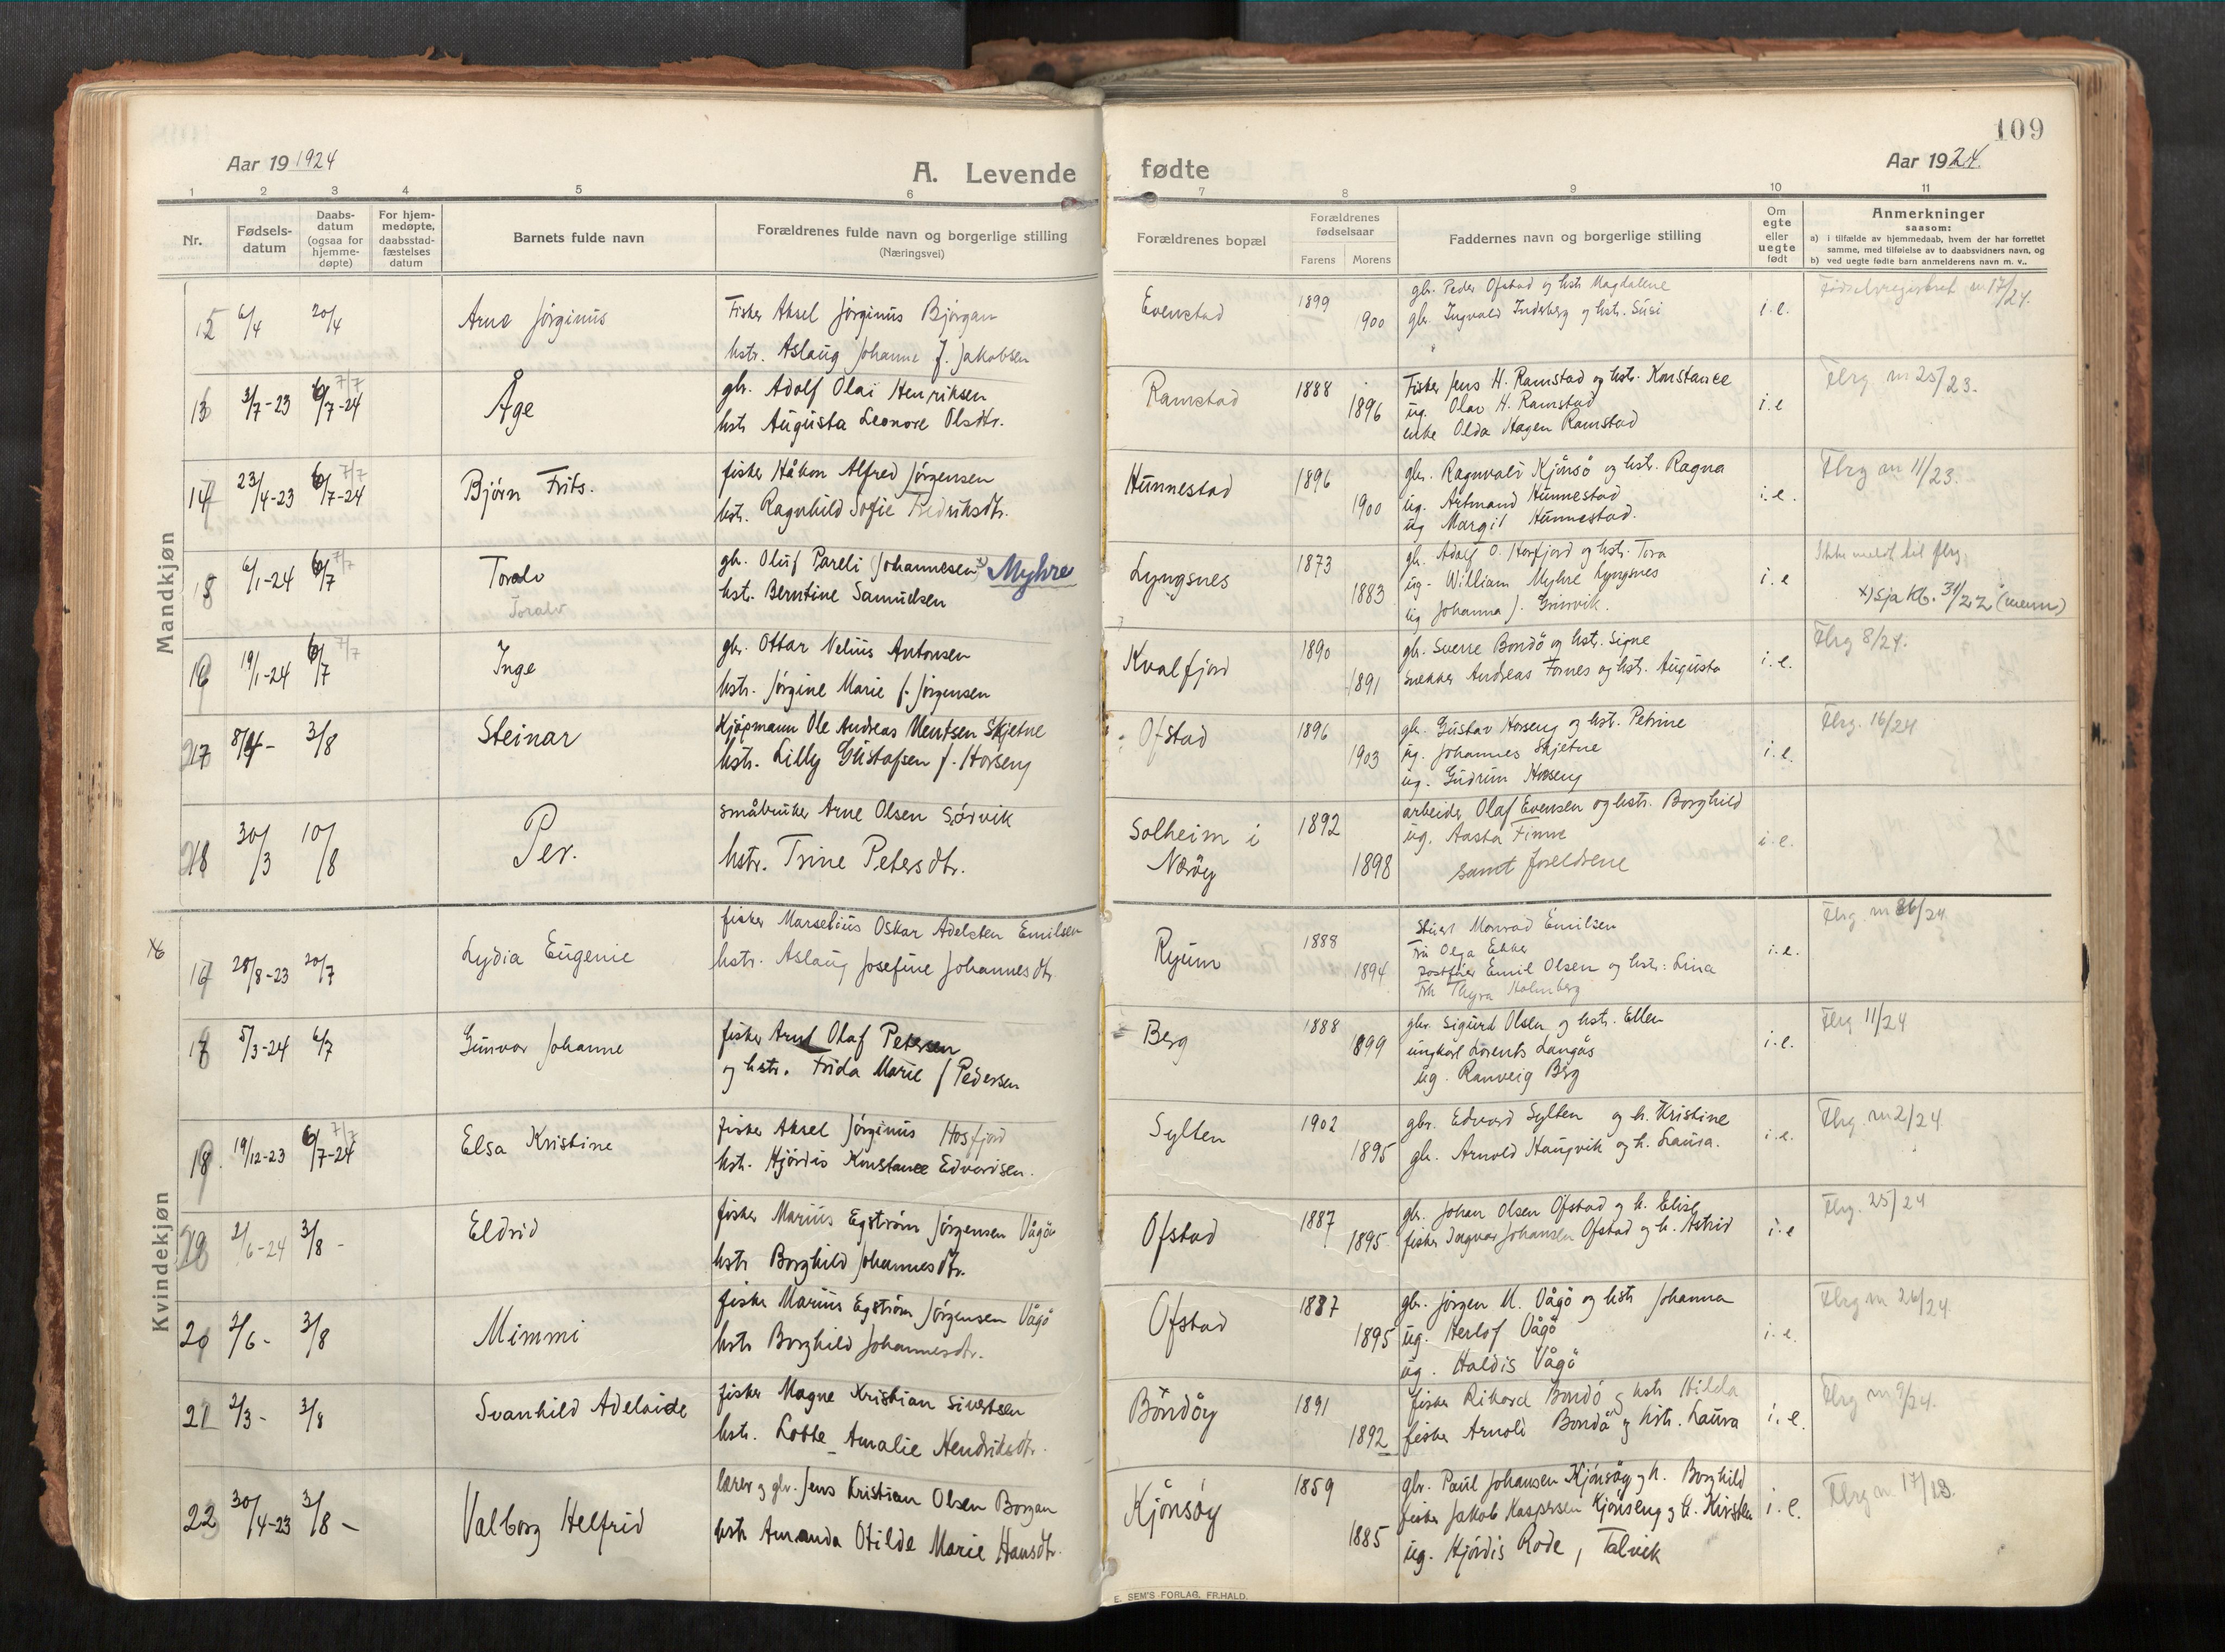 109
Aar 19 1924
A. Levende fødte
Aar 1924.
1 2 3 4 5 6 7 8 9 10 11
Nr.
Fødsels-
datum
Daabs-
datum
(ogsaa for
hjemme-
døpte)
For hjem-
medøpte,
daabsstad-
fæstelses
datum
Barnets fulde navn
Forældrenes fulde navn og borgerlige stilling
(Næringsvei)
Forældrenes bopæl
Forældrenes
fødselsaar
Farens Morens
Faddernes navn og borgerlige stilling
Om
egte
eller
uegte
født
Anmerkninger
saasom:
a) i tilfælde av hjemmedaab, hvem der har forrettet
samme, med tilføielse av to daabsvidners navn, og
b) ved uegte fødte barn anmelderens navn m. v..
Mandkjøn
6/4 20/4 Arne Jørginus
Fisker Aksel Jørginus Bjørgan
hstr. Aslaug Johanne f. Jakobsen
Evenstad 1899 1900
gbr. Peder Ofstad og hstr Magdalene
gbr. Ingvald Inderberg og hstr. Susi
i.e.
Fødselsregistret nr 17/24.
13 3/7-23 6/7-24 7/7 Åge
gbr. Adolf Olai Henriksen
hstr Augusta Leonore Olsdtr.
Ramstad 1888 1896
Fisker Jens H. Ramstad og hstr. Konstance
ug. Olav H. Ramstad
enke Olda Hagen Ramstad
i.e
Flrg nr 25/23.
14 23/4-23 6/7-24 7/7 Bjørn Frits.
fisker Håkon Alfred Jørgensen
hstr. Ragnhild Sofie Fredriksdtr.
Hunnestad 1896 1900
gbr. Ragnvald Kjønsö og hstr. Ragna
ug. Artmand Hunnestad
ug Margit Hunnestad.
i.e.
Flrg nr 11/23.
15 6/1-24 6/7 7/7 Toralv
Toralv
gbr. Oluf Pareli (Johannesen x) Myhre
hstr. Berntine Samuelsen
Lyngsnes 1873 1883
gbr. Adolf O. Horfjord og hstr. Tora
ug. William Myhre Lyngsnes
ug Johanna J. Grinvik.
i.e
Ikke meldt til flrg.
x) Sja kb. 31/22 (menn)
16 19/1-24 6/7 7/7 Inge
gbr. Ottar Nelius Antonsen
hstr. Jørgine Marie f. Jørgensen
Kvalfjord 1890 1891
gbr. Sverre Bondö og hstr. Signe
snekker Andreas Fornes og hstr. Augusta
i.e.
Flrg 8/24.
17 8/4- 3/8 Steinar
Kjøpmann Ole Andreas Mentsen Skjetne
hstr. Lilly Gustafsen f. Horseng
Ofstad 1896 1903
gbr. Gustav Horseng og hstr. Petrine
ug. Johannes Skjetne
ug. Gudrun Horseng
i.e.
Flrg. 16/24
18 30/3 10/8 Per.
småbruker Arne Olsen Sörvik
hstr. Trine Petersdtr.
Solheim i
Nærøy
1892 1898
arbeider Olaf Evensen og hstr. Borghild
ug. Aasta Finne
samt foreldrene
i.e.
Kvindekjøn
16 28/8-23 20/7 Lydia Eugenie
fisker Marselius Oskar Adelsten Emilsen
hstr. Aslaug Josefine Johannesdtr
Ryum 1888 1894
Stuert Monrad Emilsen
Fru Olga Ekker
Postfører Emil Olsen og hstr: Lina
Frk Thyra Holmberg
i.e.
Flrg. nr 36/24
17 5/3-24 6/7 Gunvor Johanne
fisker Arnt Olaf Petersen
og hstr. Frida Marie f Pedersen
Berg 1888 1899
gbr. Sigurd Olsen og hstr. Ellen
ungkarl Lorents Langås
ug. Ranveig Berg
i.e.
Flrg 11/24
18 19/12-23 6/7-24 7/7 Elsa Kristine
fisker Aksel Jörginus Hosfjord
hstr. Hjördis Konstance Edvardsen.
Sylten 1902 1895
gbr. Edvard Sylten og h. Kristine
gbr. Arnold Haugvik og h. Laura.
i.e.
Flrg. nr 2/24.
19 2/6-24 3/8- Eldrid
fisker Marius Egström Jörgensen Vågö
hstr Borghild Johannesdtr.
Ofstad 1887 1895
gbr. Johan Olsen Ofstad og h. Elise
fisker Dagvar Johansen Ofstad og h. Astrid
i.e
Flrg. 25/24
20 2/6- 3/8 Mimmi
fisker Marius Egström Jörgensen Vågö
hstr Borghild Johannesdtr.
Ofstad 1887 1895
gbr. Jörgen M. Vågö og hstr Johanna
ug. Herlof Vågö
ug. Haldis Vågö
i.e.
Flrg nr 26/24.
21 2/3- 3/8 Svanhild Adelaide
fisker Magne Kristian Sivertsen
hstr. Lotte Amalie Hendriksdtr.
Bondöy 1891 1892
fisker Rikard Bondö og hstr Hilda
fisker Arnold Bondö og hstr. Laura
i.e.
Flrg nr 9/24.
22 30/4-23 3/8- Valborg Helfrid
lærer og gbr. Jens Kristian Olsen Borgan
hstr Amanda Otilde Marie Hansdtr.
Kjönsöy 1859 1885
gbr. Paul Johansen Kjönsöy og h. Borghild
fisker Jakob Kaspersen Kjönsöy og h. Kirsten
ug. Hjördis Rode, Talvik
i.e.
Flrg nr. 17/23.
E. SEM'S FORLAG, FR.HALD.